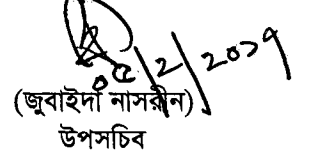 ০৫/২/২০১৭
(জুবাইদা নাসরীন)
উপসচিব